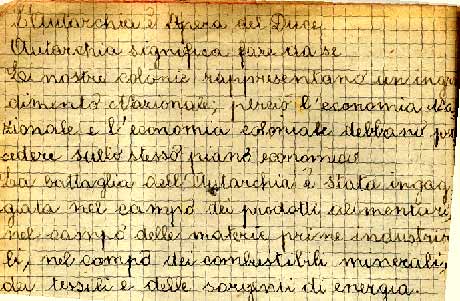 L'Autarchia è opera del Duce,
Autarchia significa fare da se
Le nostre colonie rappresentano un ingra
dimento Nazionale; perciò l'economia Na
zionale e l'economia coloniale debbano pro
cedere sullo stesso piano economico
La battaglia dell'Autarchia è stata ingag
giata nel campo dei prodotti alimentari,
nel campo delle materie prime industria
li, nel campo dei combustibili minerali,
dei tessili e delle sorgenti di energia.